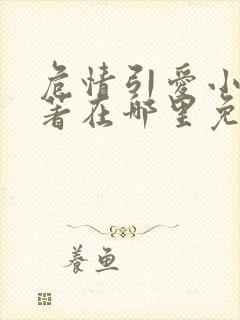 危情引爱小
著在哪里免
养鱼